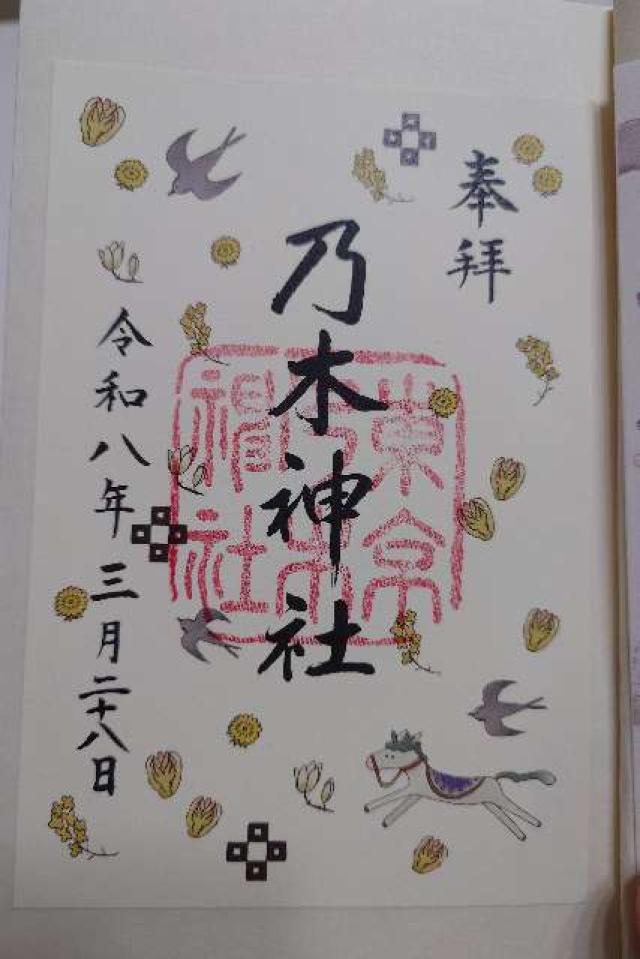 奉拝
乃木神社
東京乃木神社
令和八年三月二十八日